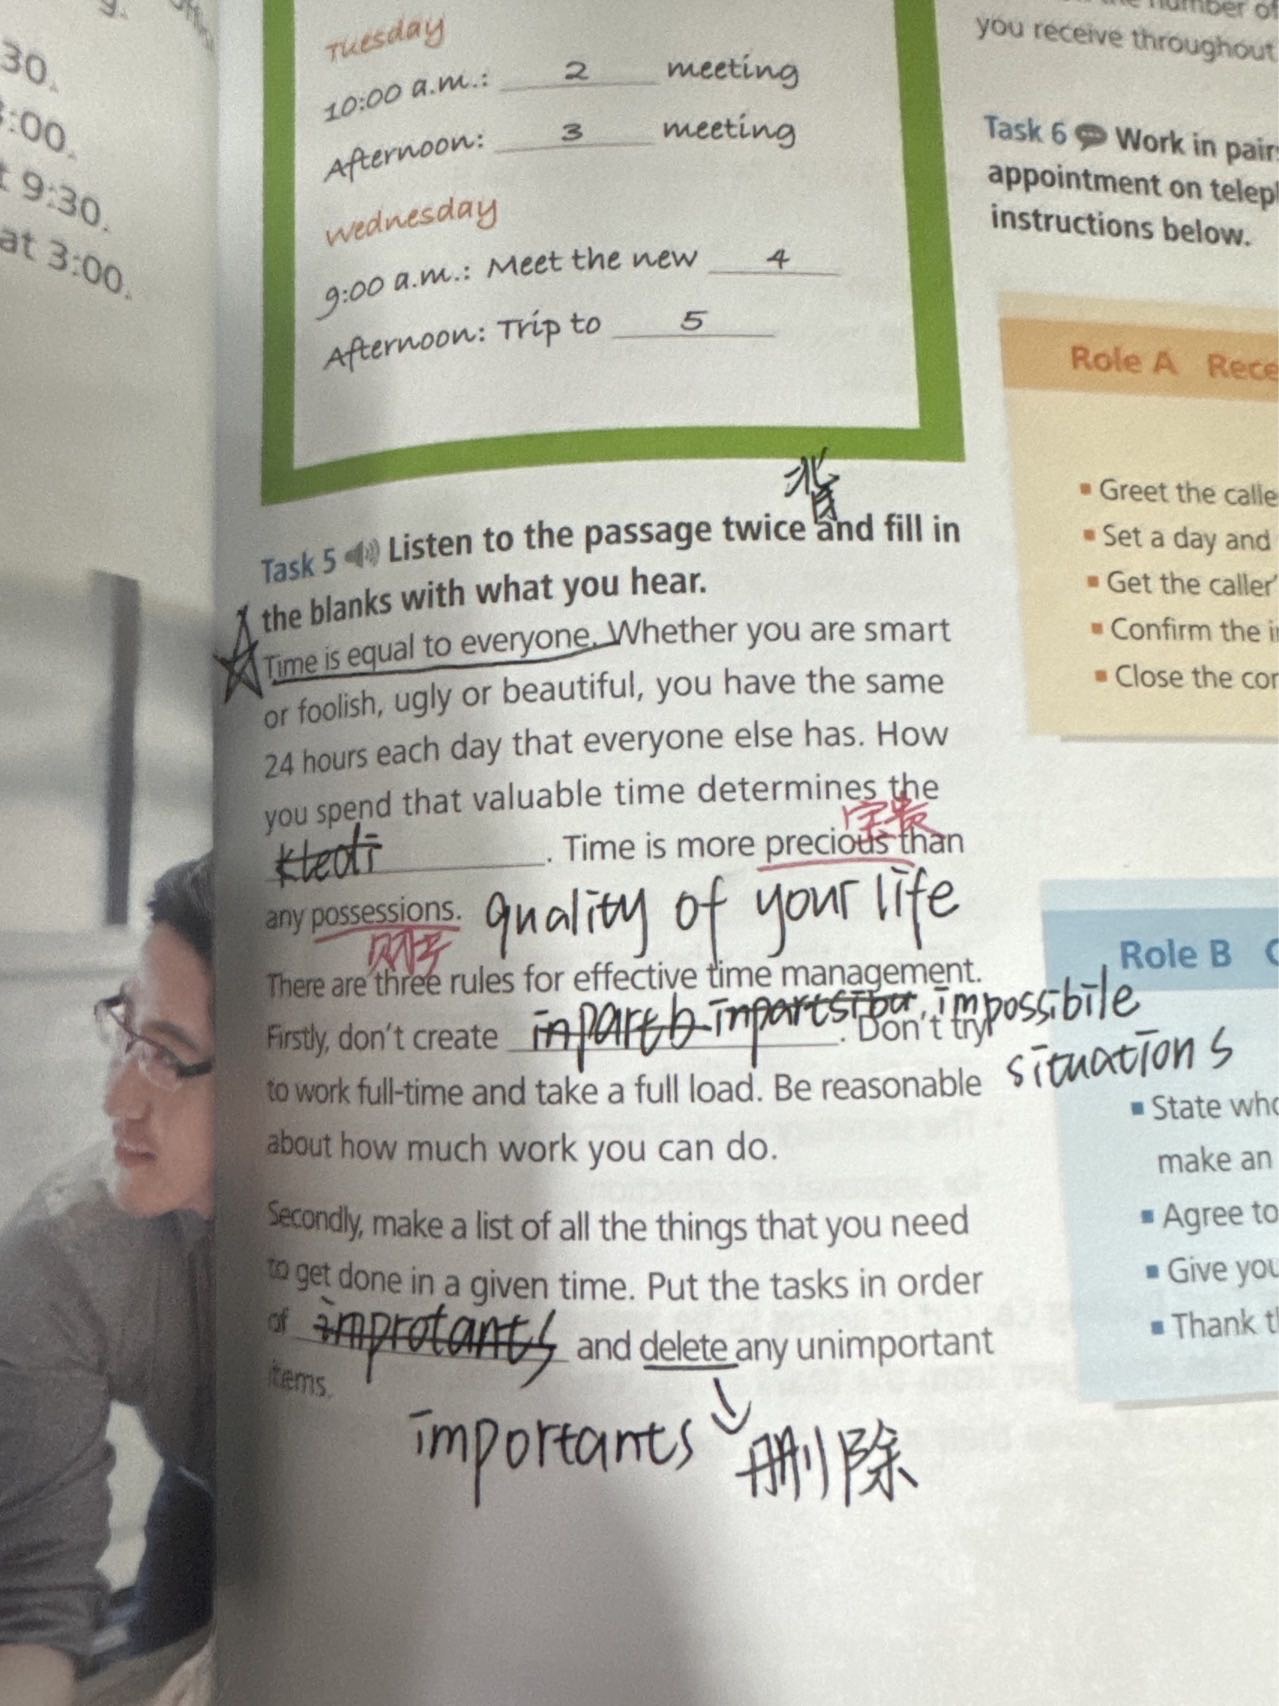 30.
:00.
t 9:30.
at 3:00.
Tuesday
10:00 a.m.: 2 meeting
Afternoon: 3 meeting
Wednesday
9:00 a.m.: Meet the new 4
Afternoon: Trip to 5
背
Task 5 Listen to the passage twice and fill in
the blanks with what you hear.
Time is equal to everyone. Whether you are smart
or foolish, ugly or beautiful, you have the same
24 hours each day that everyone else has. How
you spend that valuable time determines the
宝贵
. Time is more precious than
any possessions. quality of your life
There are three rules for effective time management.
Firstly, don't create . Don't try impossibile
situations
to work full-time and take a full load. Be reasonable
about how much work you can do.
Secondly, make a list of all the things that you need
to get done in a given time. Put the tasks in order
of improtants and delete any unimportant
items.
importants 删除
number of
you receive throughout
Task 6 Work in pair
appointment on telep
instructions below.
Role A Rece
Greet the calle
Set a day and
Get the caller'
Confirm the i
Close the cor
Role B
State who
make an
Agree to
Give you
Thank t